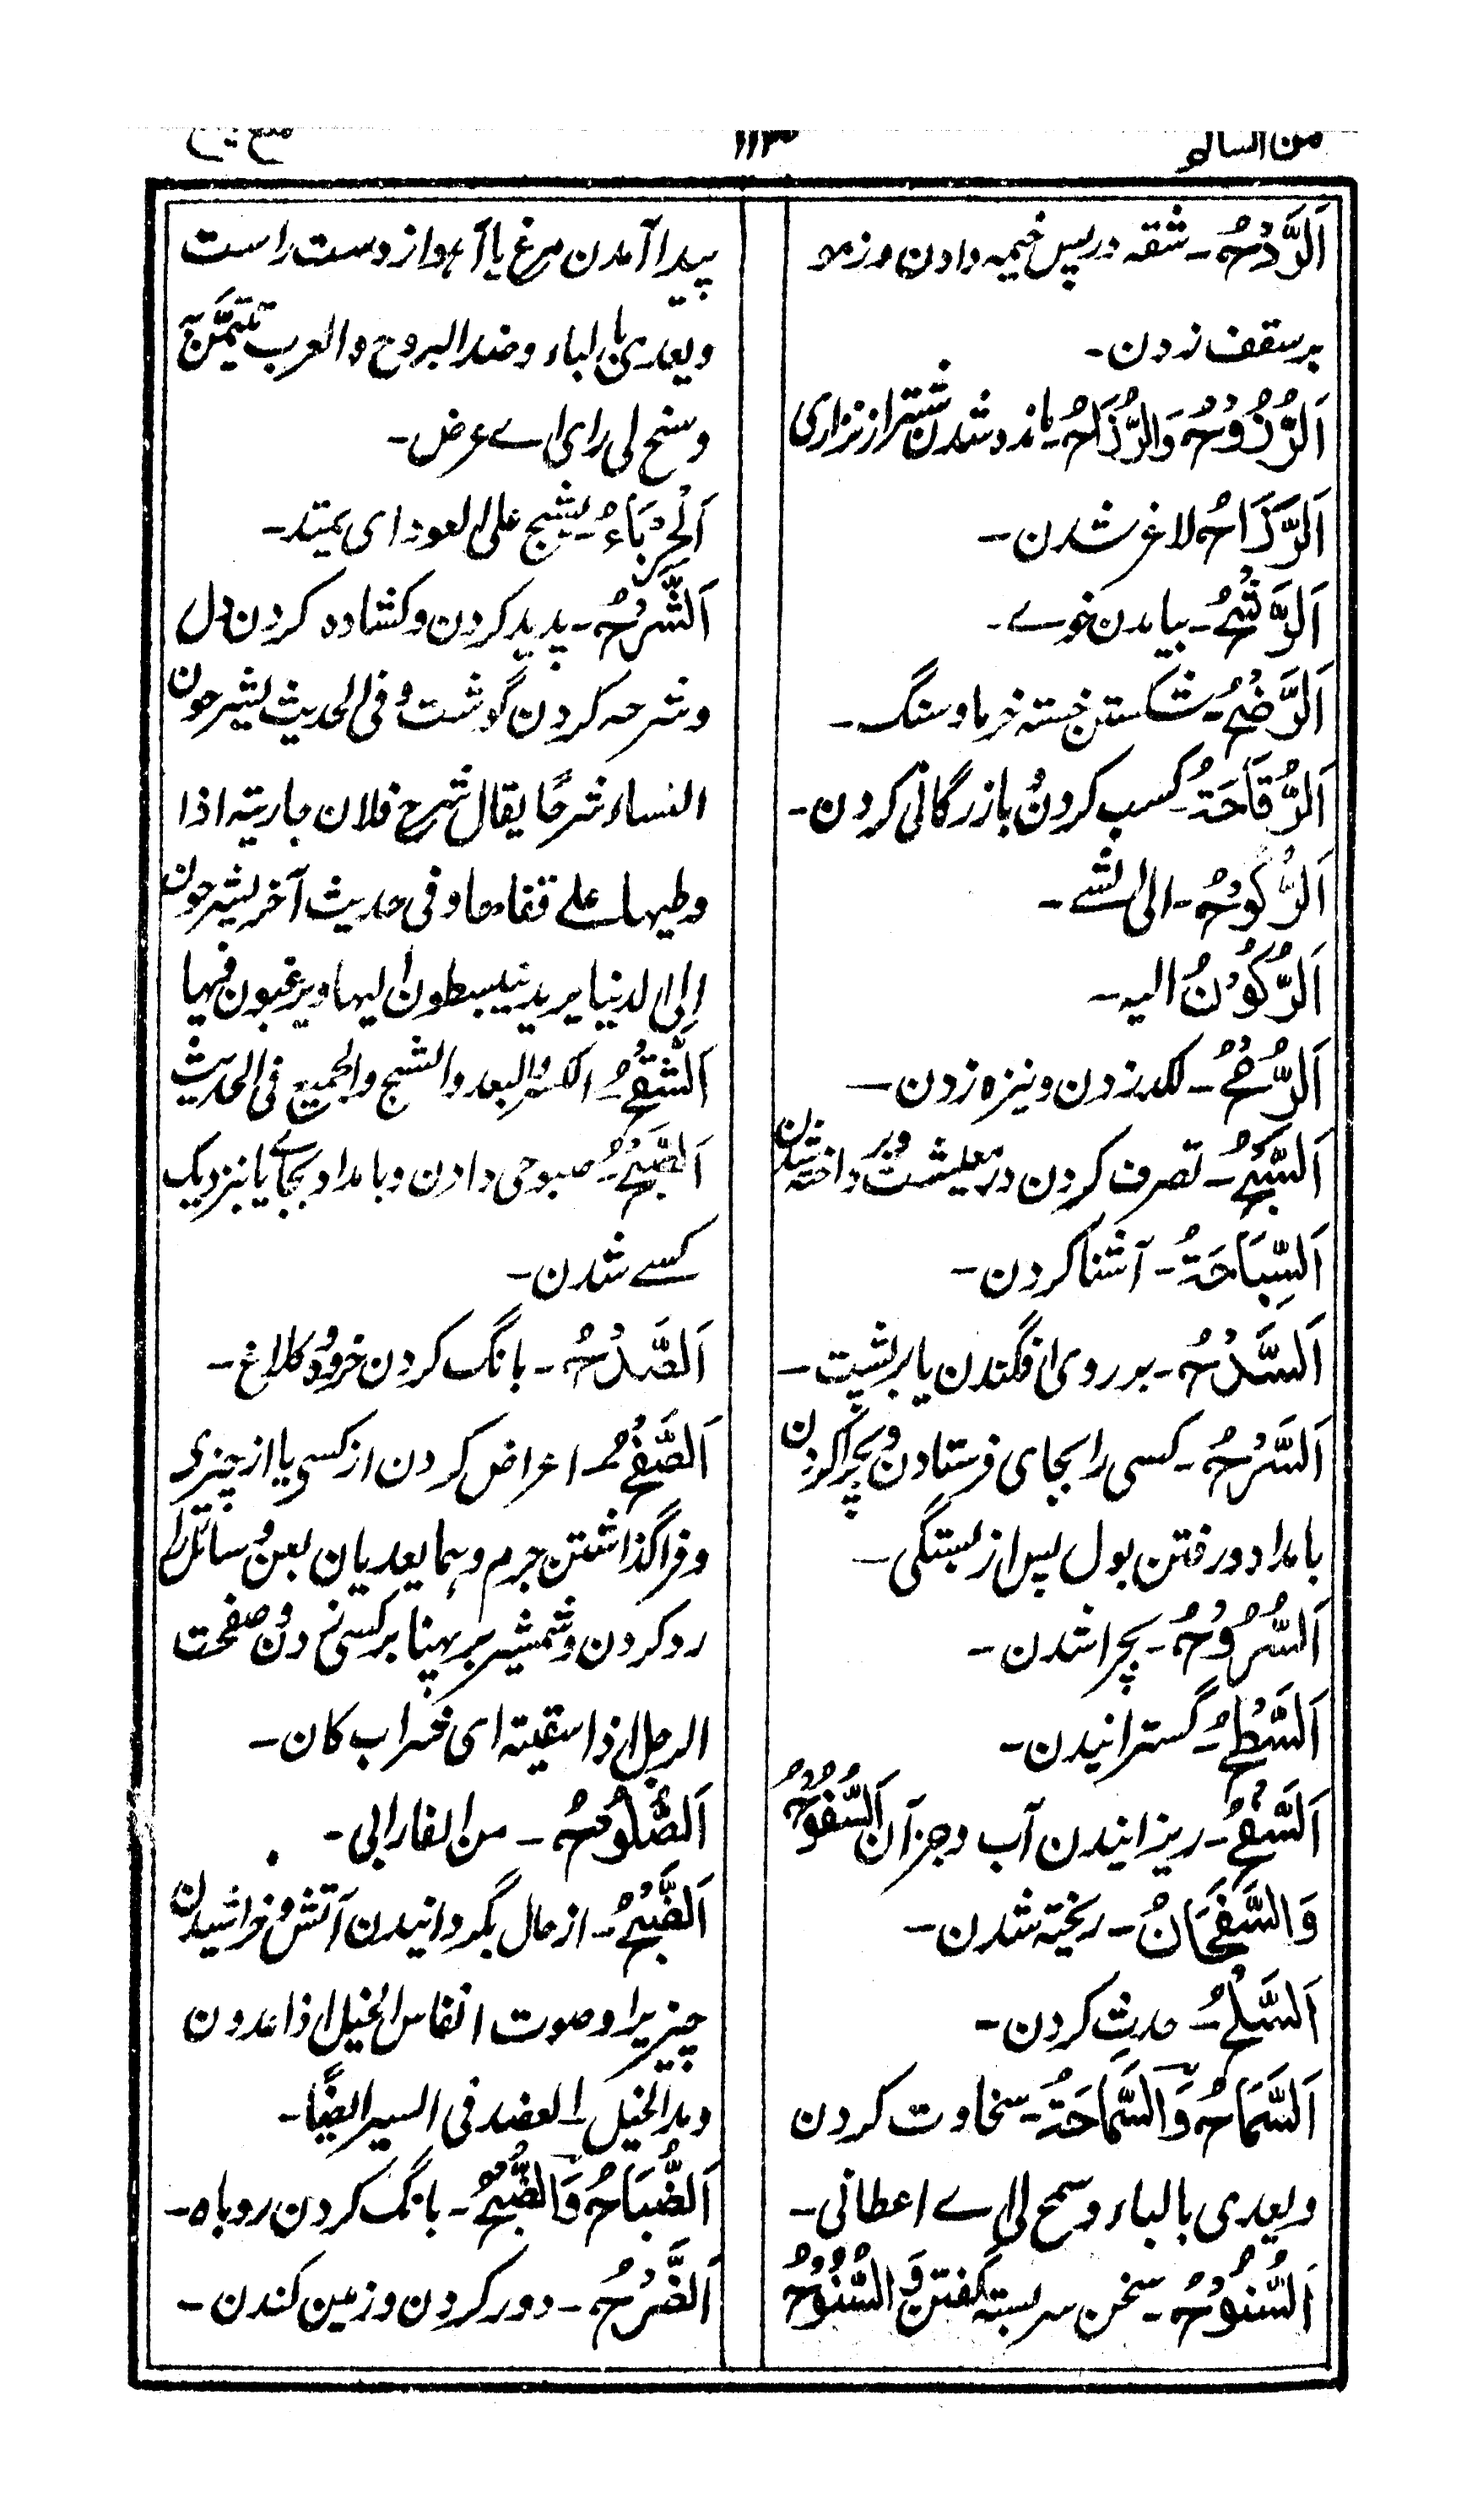 من السالم
۱۱۳
اَلرَّدْحُ۔ شقہ در پس خیمہ دادن و زمو
بر سقف زدن۔
اَلرُّزُوْحُ وَالرُّزَاحُ۔ ماندہ شدن شتر از نزاری
اَلرَّزَاحُ لاغر شدن۔
اَلرَّشْحُ۔ بیامدن خوے۔
اَلرَّضْحُ۔ شکستن خستہ خرما و سنگ۔
اَلرَّقَاحَةُ۔ کسب کردن و بازرگانی کردن۔
اَلرُّکُوْحُ۔ الی الشے۔
اَلرُّکُوْنُ الیہ۔
اَلرُّمْحُ۔ لکد زدن و نیزہ زدن۔
اَلسَّبْحُ۔ تصرف کردن در معیشت و پرداختہ شدن
اَلسِّبَاحَةُ۔ آشنا کردن۔
اَلسَّدْحُ۔ بر روی افگندن یا بر پشت۔
اَلسَّرْحُ۔ کسی را بجای فرستادن و بچرا کردن
بامداد و رفتن بول پس از بستگی۔
اَلسُّرُوْحُ۔ بچرا شدن۔
اَلسَّطْحُ۔ گسترانیدن۔
اَلسَّفْحُ۔ ریزانیدن آب و جز آن اَلسُّفُوْحُ
وَالسَّفَحَانُ۔ ریختہ شدن۔
اَلسَّلْحُ۔ حدث کردن۔
اَلسَّمَاحُ وَالسَّمَاحَةُ۔ سخاوت کردن
و یعدی بالباء و سمح لی اے اعطانی۔
اَلسُّنُوْحُ۔ سخن سر بستہ گفتن و اَلسُّنُوْحُ
پیدا آمدن مرغ یا آہو از دست راست
و یعدی بالباء و ضد البروح و العرب تتیمّن بہ
و سنح لی رای اے عرض۔
اَلْحِرْبَاءُ۔ یشبح علی العود ای یمتد۔
اَلشَّرْحُ۔ پدید کردن و کشادہ کردن دل
و شرحہ کردن گوشت و فی الحدیث یشرحون
النساء شرحًا یقال شرح فلان جاریتہ اذا
وطیہا علے قفاہا و فی حدیث آخر یشرحون
اِلی الدنیا یرید ینبسطون الیہا و یرغبون فیہا
اَلشَّقْحُ۔ الکسر و البعد و الشج و الجمیع فی الحدیث
اَلصَّبْحُ۔ صبوحی دادن و بامداد بجاے یا بنزدیک
کسے شدن۔
اَلصَّدْحُ۔ بانگ کردن خروہ و کلاغ۔
اَلصَّفْحُ۔ اعراض کردن از کسی یا از چیزی
و فراگذاشتن جرم و ہما یعدیان بعن و سائل را
رد کردن و شمشیر بر پہنا بر کسی زدن و صفحت
الرجل اذا سقیتہ ای شراب کان۔
اَلصُّلُوْحُ۔ من الفارابی۔
اَلضَّبْحُ۔ از حال بگردانیدن آتش و خراشیدن
چیزیرا و صوت انفاس الخیل اذا عدون
و مد الخیل العضد فی السیر ایضًا۔
اَلضُّبَاحُ وَالضَّبْحُ۔ بانگ کردن روباہ۔
اَلضَّرْحُ۔ دور کردن و زمین کندن۔